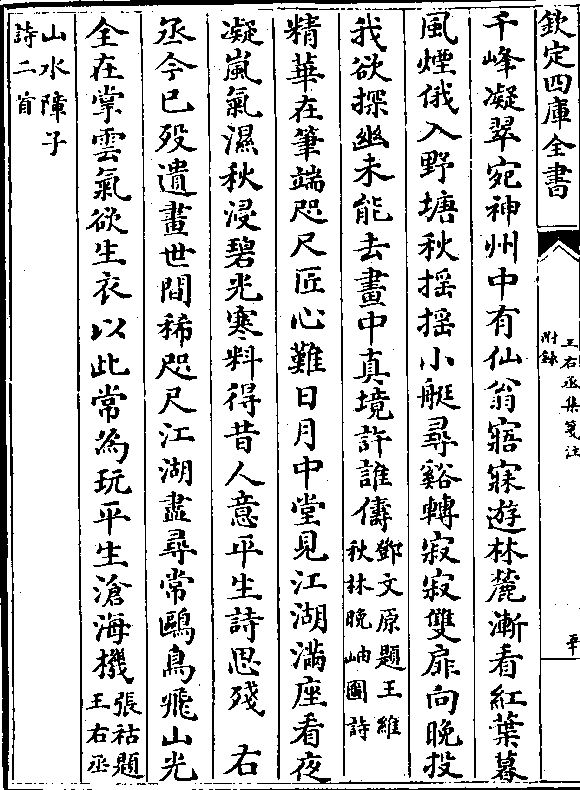 欽定四庫全書
王右丞集箋注
附錄
千峰凝翠宛神州中有仙翁寤寐遊林麓漸看紅葉暮
風煙俄入野塘秋揺揺小艇尋谿轉寂寂雙扉向晚投
我欲探幽未能去畫中真境許誰儔鄧文原題王維
秋林晚岫圖詩
精華在筆端咫尺匠心難日月中堂見江湖滿座看夜
凝嵐氣濕秋浸碧光寒料得昔人意平生詩思殘 右
丞今已殁遺畫世間稀咫尺江湖盡尋常鷗鳥飛山光
全在掌雲氣欲生衣以此常為玩平生滄海機張祜題
王右丞
山水障子
詩二首